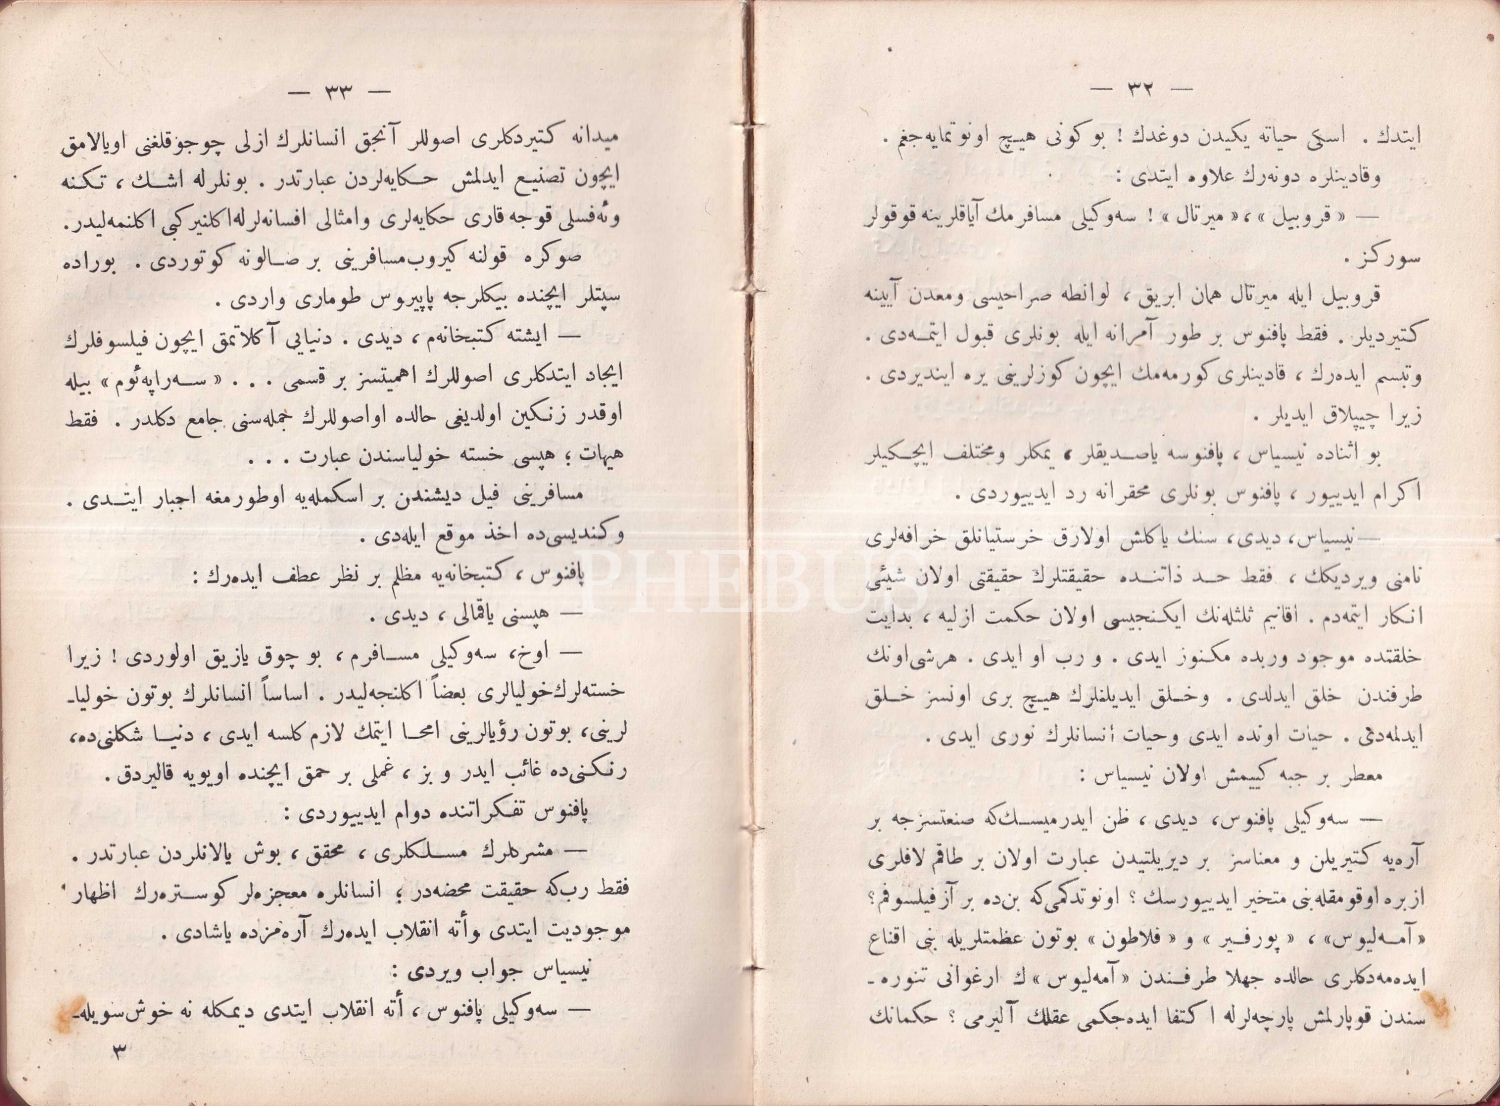 — ٣٢ —
ايتدك . اسكی حياته يكيدن دوغدك ! بو كونی هيچ اونوتمايه‌جغم .
وقادينلره دونه‌رك علاوه ايتدی :
— « قروبيل » ، « ميرتال » ! سه‌وكيلی مسافرمك آياقلرينه قوقولر
سوركز .
قروبيل ايله ميرتال همان ابريق ، لوانطه صراحيسی ومعدن آيينه
كتيرديلر . فقط پافنوس بر طور آمرانه ايله بونلری قبول ايتمه‌دی .
وتبسم ايده‌رك ، قادينلری كورمه‌مك ايچون كوزلرينی يره اينديردی .
زيرا چيپلاق ايديلر .
بو اثناده نيسياس ، پافنوسه ياصديقلر ، يمكلر ومختلف ايچكيلر
اكرام ايدييور ، پافنوس بونلری محقرانه رد ايدييوردی .
— نيسياس، ديدی، سنك ياكلش اولارق خرستيانلق خرافه‌لری
نامنی ويرديكك ، فقط حد ذاتنده حقيقتلرك حقيقتی اولان شيئی
انكار ايتمه‌دم . اقانيم ثلثه‌نك ايكنجيسی اولان حكمت ازليه ، بدايت
خلقتده موجود وربده مكنوز ايدی . و رب او ايدی . هرشی اونك
طرفندن خلق ايدلدی . وخلق ايديلنلرك هيچ بری اونسز خلق
ايدلمه‌دی . حيات اونده ايدی وحيات انسانلرك نوری ايدی .
معطر بر جبه كييمش اولان نيسياس :
— سه‌وكيلی پافنوس، ديدی ، ظن ايدرميسك‌كه صنعتسزجه بر
آره‌يه كتيريلن و معناسز بر ديريلتيدن عبارت اولان بر طاقم لافلری
ازبره اوقومقله‌بنی متحير ايدييورسك ؟ اونوتدكمی‌كه بن‌ده بر آز فيلسوفم ؟
« آمه‌ليوس » ، « پورفير » و « فلاطون » بوتون عظمتلريله بنی اقناع
ايده‌مه‌دكلری حالده جهلا طرفندن « آمه‌ليوس » ك ارغوانی تنوره ـ
سندن قوپارلمش پارچه‌لرله اكتفا ايده‌جكمی عقلك آليرمی ؟ حكمانك
— ٣٣ —
ميدانه كتيردكلری اصوللر آنجق انسانلرك ازلی چوجوقلغنی اويالامق
ايچون تصنيع ايدلمش حكايه‌لردن عبارتدر . بونلرله اشك ، تكنه
وئه‌فسلی قوجه قاری حكايه‌لری وامثالی افسانه‌لرله اكلنير كبی اكلنمه‌ليدر.
صوكره قولنه كيروب مسافرينی بر صالونه كوتوردی . بوراده
سپتلر ايچنده بيكلرجه پاپيروس طوماری واردی .
— ايشته كتبخانه‌م ، ديدی . دنيايی آكلاتمق ايچون فيلسوفلرك
ايجاد ايتدكلری اصوللرك اهميتسز بر قسمی . . . « سه‌راپه‌ئوم » بيله
اوقدر زنكين اولديغی حالده اواصوللرك جمله‌سنی جامع دكلدر . فقط
هيهات ؛ هپسی خسته خولياسندن عبارت . . .
مسافرينی فيل ديشندن بر اسكمله‌يه اوطورمغه اجبار ايتدی .
وكنديسی‌ده اخذ موقع ايله‌دی .
پافنوس ، كتبخانه‌يه مظلم بر نظر عطف ايده‌رك :
— هپسنی ياقمالی ، ديدی .
— اوخ، سه‌وكيلی مسافرم ، بو چوق يازيق اولوردی ! زيرا
خسته‌لرك خوليالری بعضاً اكلنجه‌ليدر . اساساً انسانلرك بوتون خوليا ـ
لرينی، بوتون رؤيالرينی امحا ايتمك لازم كلسه ايدی ، دنيا شكلنی‌ده،
رنكنی‌ده غائب ايدر و بز ، غملی بر حمق ايچنده اويويه قاليردق.
پافنوس تفكراتنده دوام ايدييوردی :
— مشركلرك مسلكلری ، محقق ، بوش يالانلردن عبارتدر .
فقط رب‌كه حقيقت محضه‌در ؛ انسانلره معجزه‌لر كوستره‌رك اظهار
موجوديت ايتدی وأته انقلاب ايده‌رك آره‌مزده ياشادی .
نيسياس جواب ويردی :
— سه‌وكيلی پافنوس ، أته انقلاب ايتدی ديمكله نه خوش سويله ـ
٣
PHEBUS